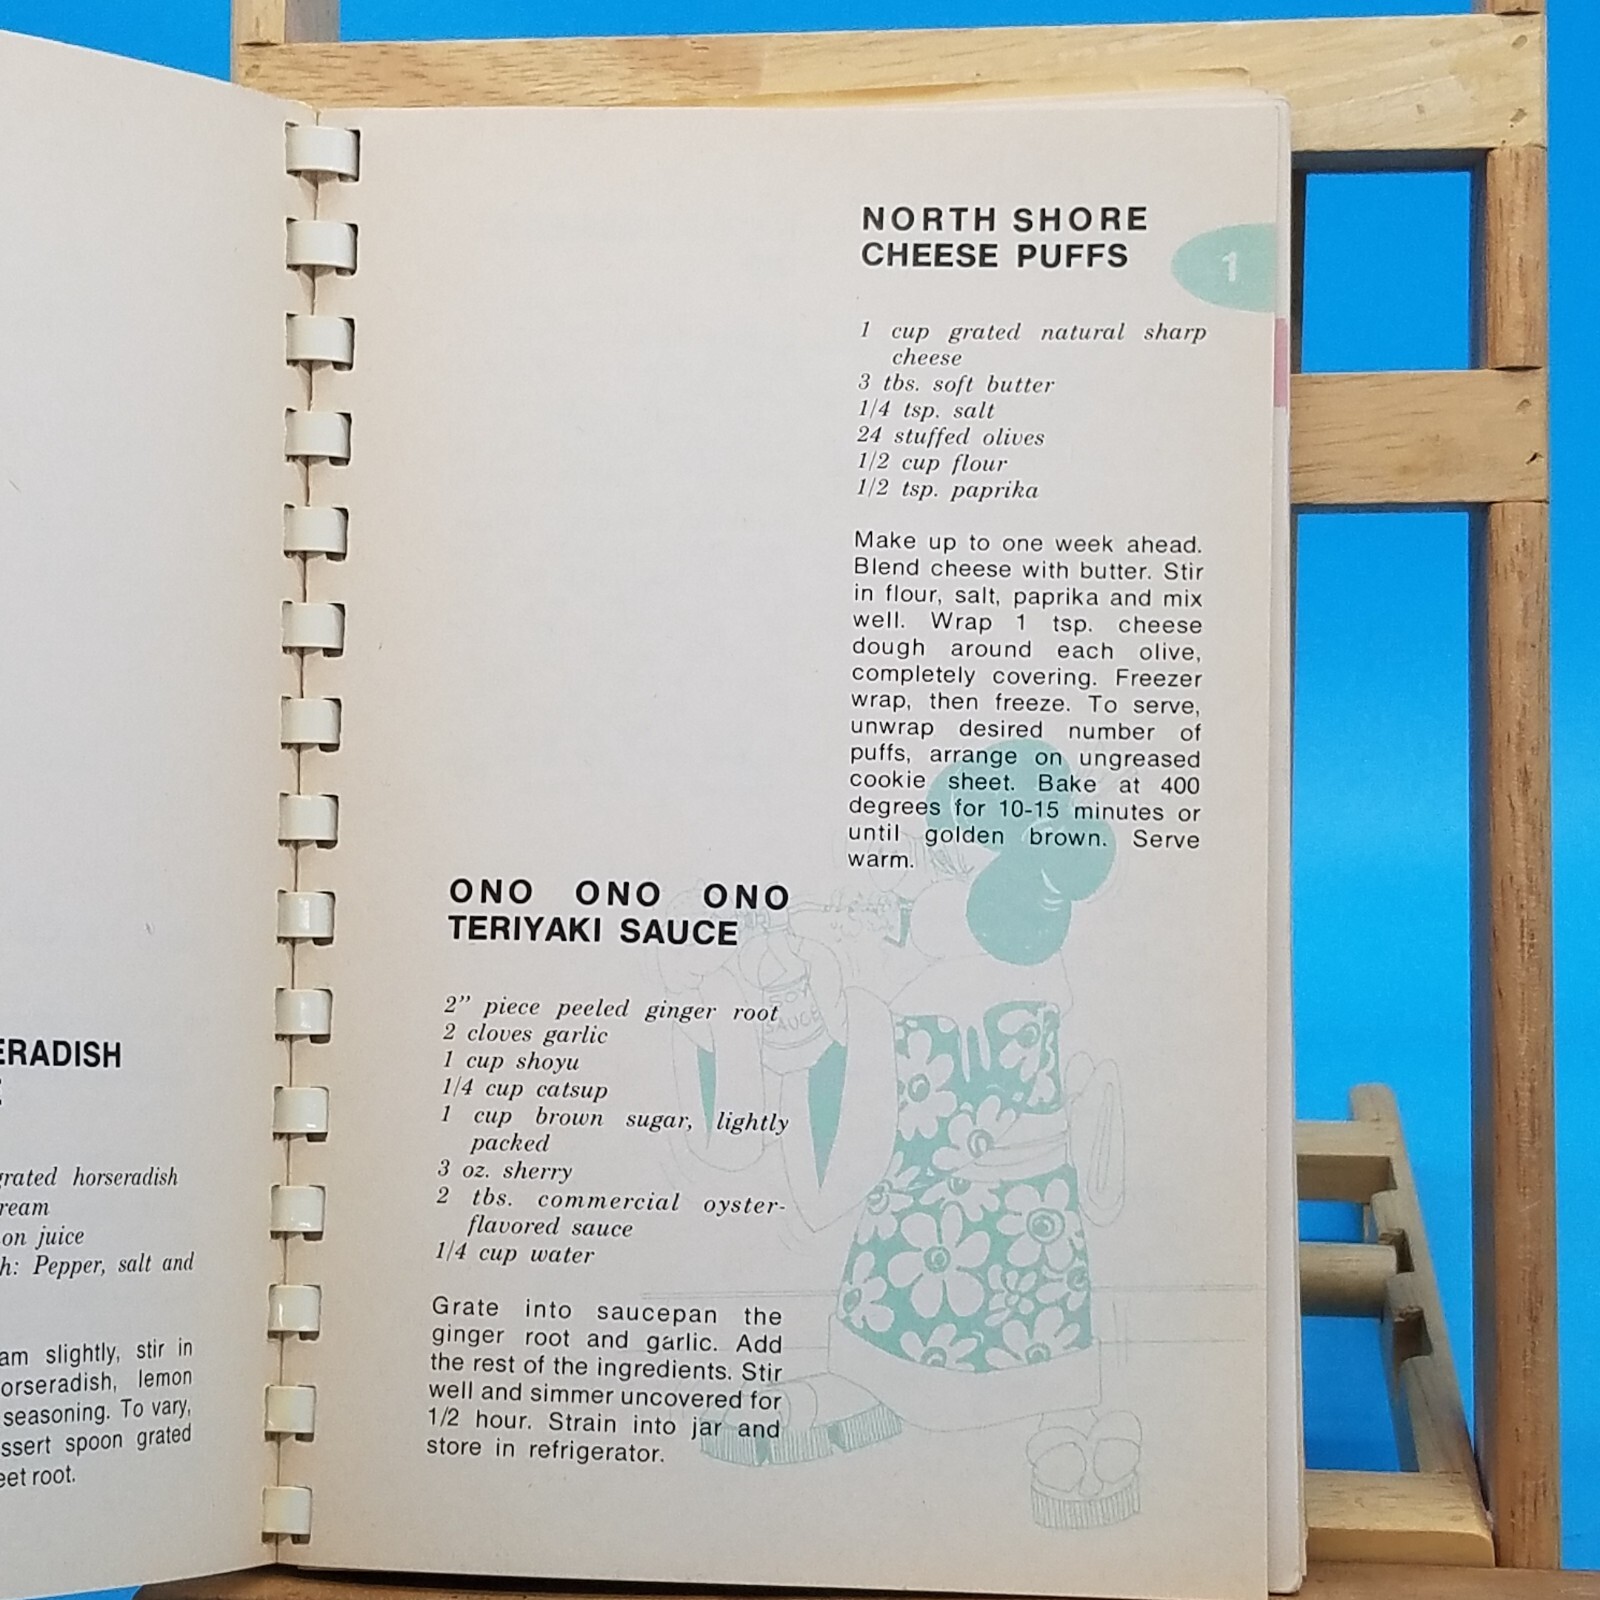 ERADISH
grated horseradish
ream
on juice
h: Pepper, salt and
am slightly, stir in
orseradish, lemon
seasoning. To vary,
ssert spoon grated
eet root.
ONO ONO ONO
TERIYAKI SAUCE
2” piece peeled ginger root
2 cloves garlic
1 cup shoyu
1/4 cup catsup
1 cup brown sugar, lightly
packed
3 oz. sherry
2 tbs. commercial oyster-
flavored sauce
1/4 cup water
Grate into saucepan the
ginger root and garlic. Add
the rest of the ingredients. Stir
well and simmer uncovered for
1/2 hour. Strain into jar and
store in refrigerator.
SOY
SAUCE
NORTH SHORE
CHEESE PUFFS
1
1 cup grated natural sharp
cheese
3 tbs. soft butter
1/4 tsp. salt
24 stuffed olives
1/2 cup flour
1/2 tsp. paprika
Make up to one week ahead.
Blend cheese with butter. Stir
in flour, salt, paprika and mix
well. Wrap 1 tsp. cheese
dough around each olive,
completely covering. Freezer
wrap, then freeze. To serve,
unwrap desired number of
puffs, arrange on ungreased
cookie sheet. Bake at 400
degrees for 10-15 minutes or
until golden brown. Serve
warm.